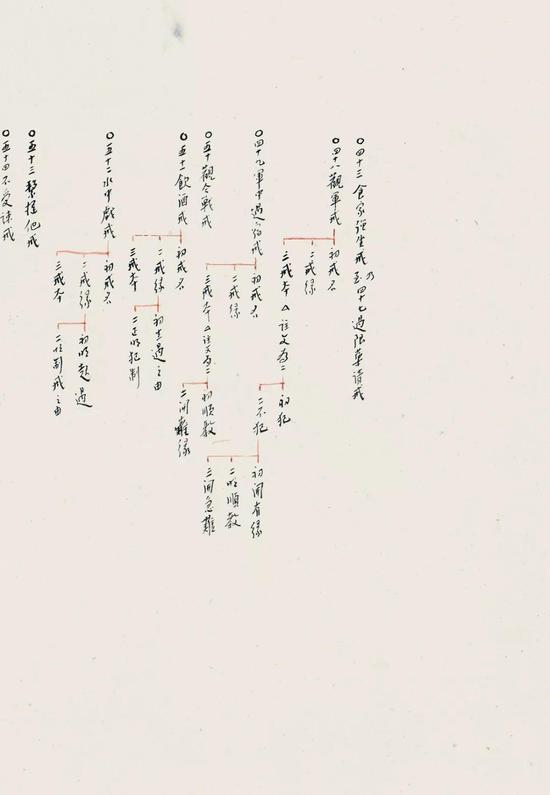 ○四十三食家強坐戒乃至四十七過限藥請戒
○四十八觀軍戒
初戒名
二戒緣
三戒本 △註文為二
初犯
二不犯
初開有緣
二明順教
三開急難
○四十九軍中過宿戒
初戒名
二戒緣
三戒本 △註文為二
初順教
二開難緣
○五十觀合戰戒
○五十一飲酒戒
初戒名
二戒緣
初生過之由
二正明犯制
三戒本
○五十二水中戲戒
初戒名
二戒緣
初明起過
二往制戒之由
三戒本
○五十三擊擽他戒
○五十四不受諫戒